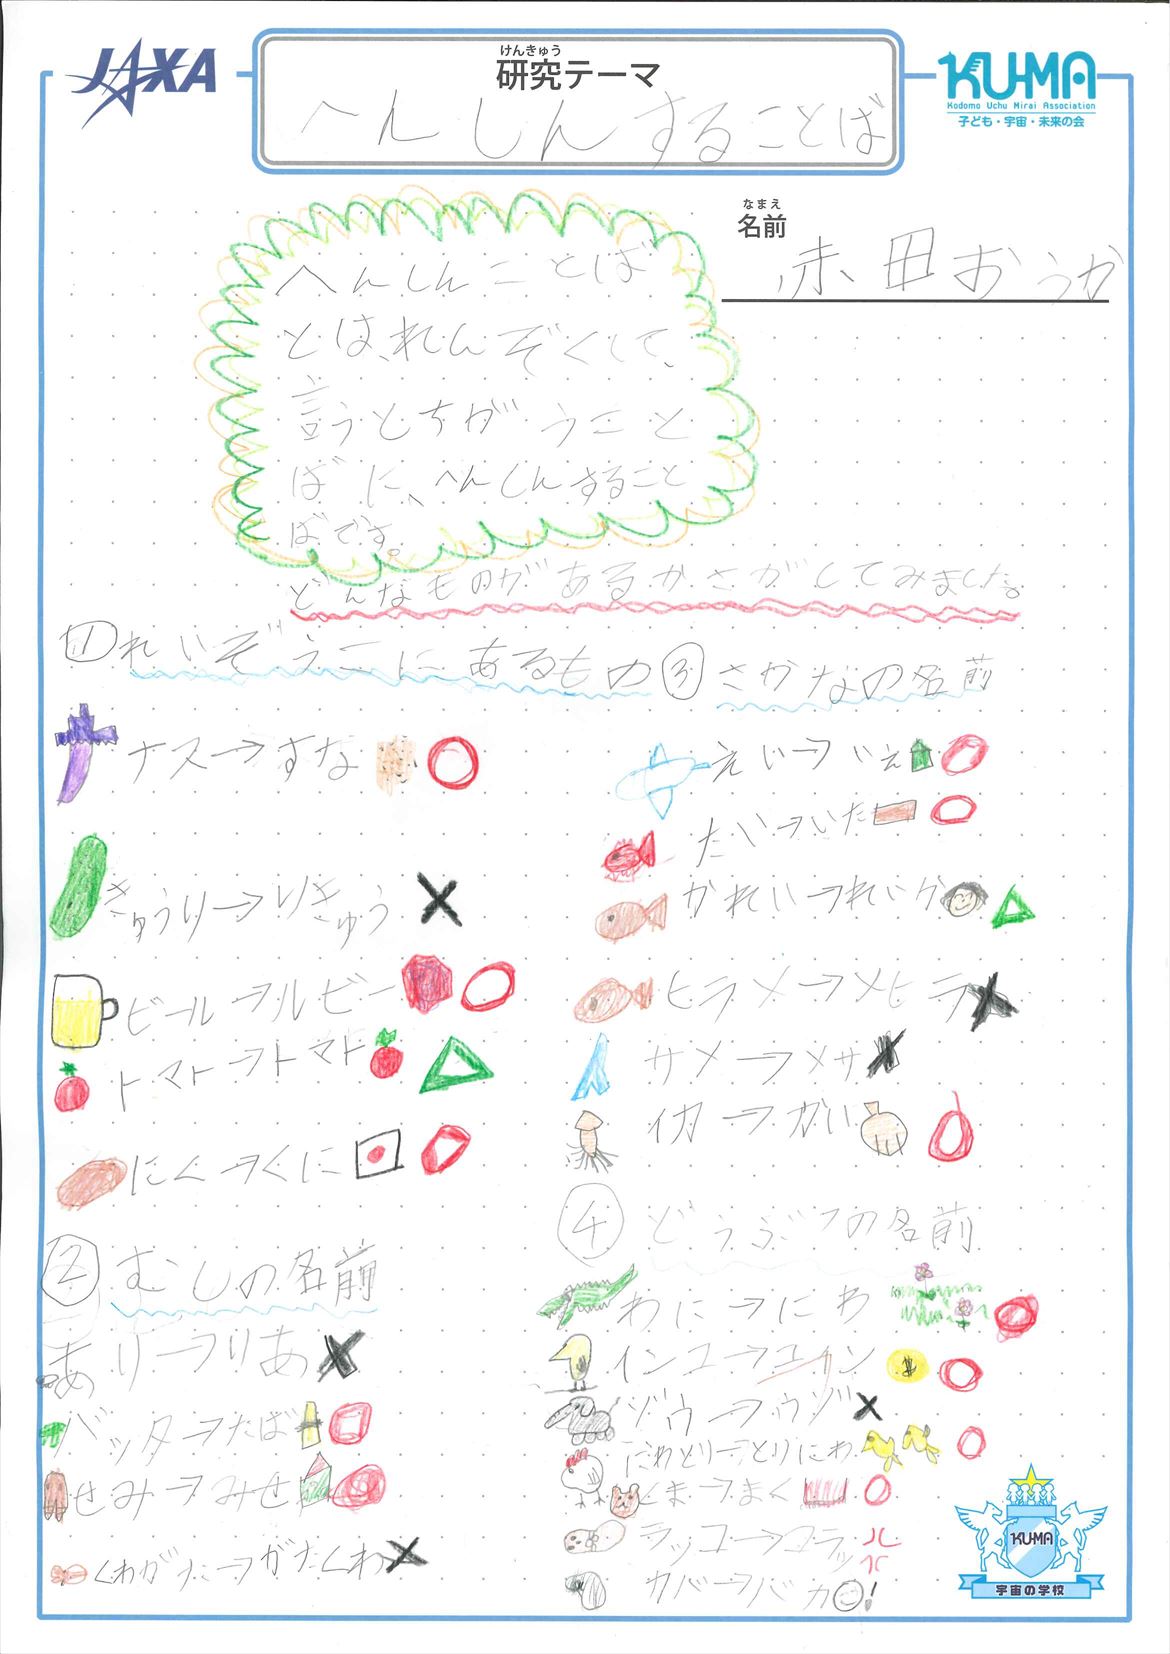 JAXA
けんきゅう
研究テーマ
へんしんすることば
KU-MA
Kodomo Uchu Mirai Association
子ども・宇宙・未来の会
なまえ
名前
赤田おうか
へんしんことば
とは、れんぞくして、
言うとちがうこと
ばに、へんしんすること
ばです。
どんなものがあるかさがしてみました。
①れいぞうこにあるもの
ナス→すな
きゅうり→りきゅう
ビール→ルビー
トマト→トマト
にく→くに
②むしの名前
あり→りあ
バッタ→たば
せみ→みせ
くわがた→がたくわ
③さかなの名前
えい→いえ
たい→いた
かれい→れいか
ヒラメ→メヒラ
サメ→メサ
イカ→かい
④どうぶつの名前
わに→にわ
インコ→コイン
ゾウ→ウゾ
にわとり→とりにわ
くま→まく
ラッコ→コラッ
カバ→バカ!
KU-MA
宇宙の学校